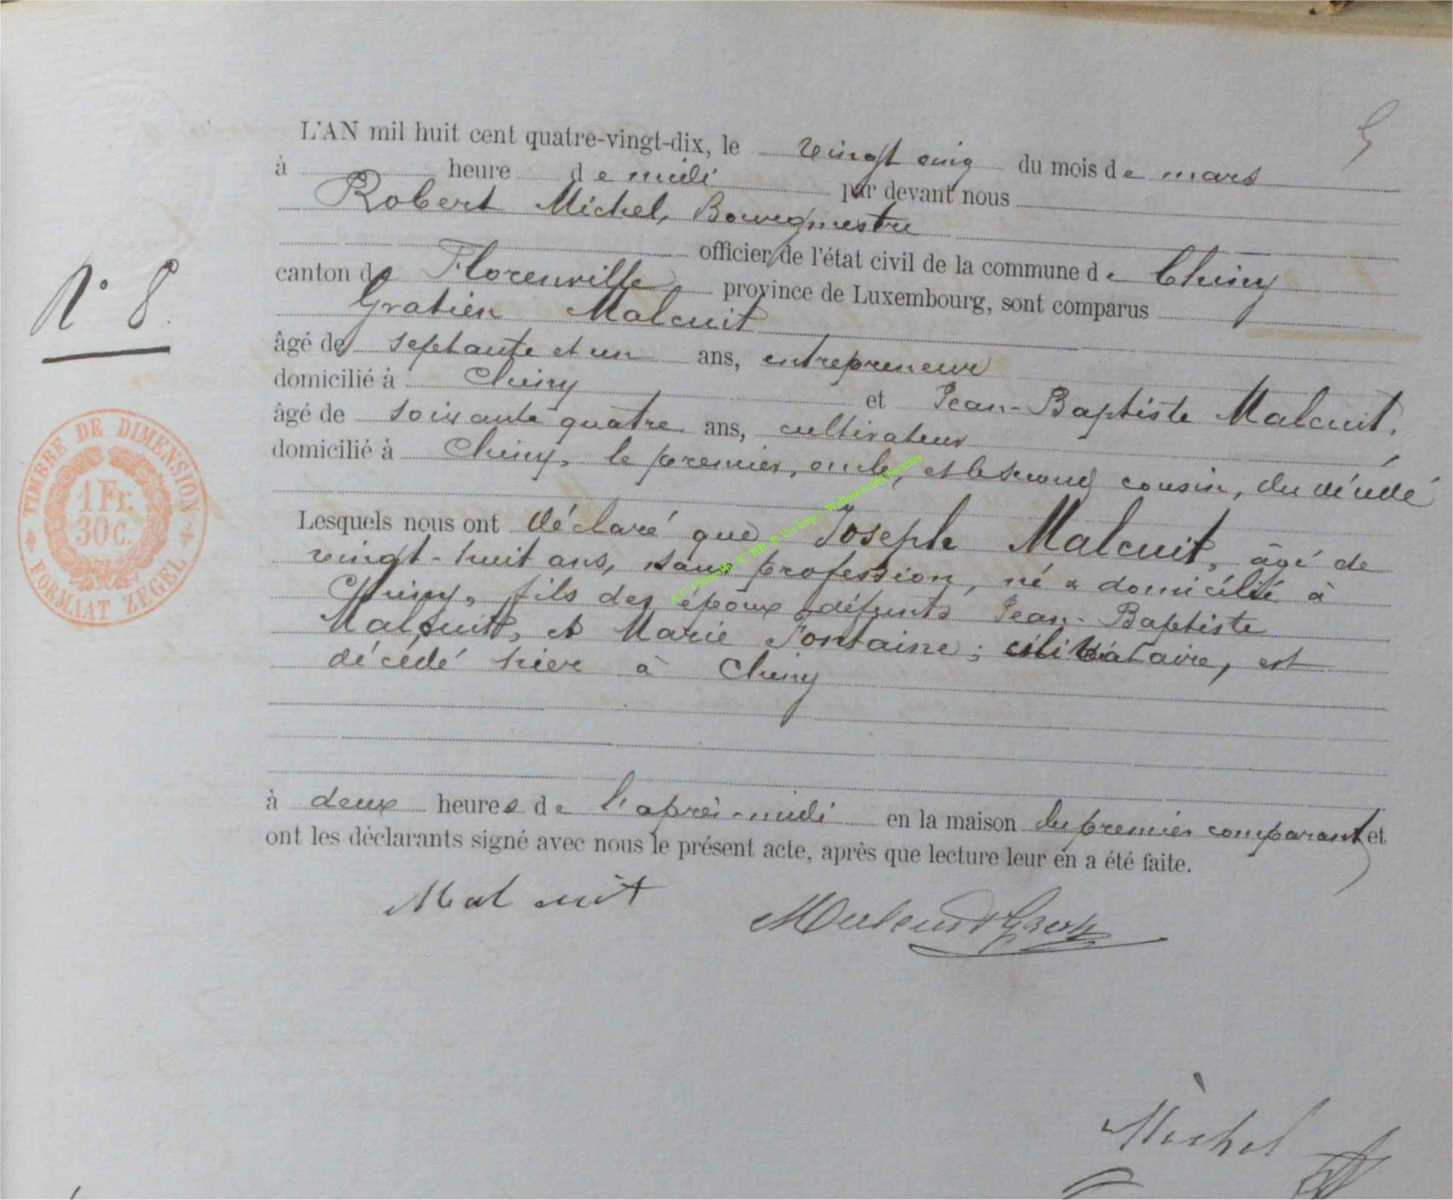 L'AN mil huit cent quatre-vingt-dix, le vingt cinq du mois de mars
à heure de midi par devant nous
Robert Michel, Bourgmestre
officier de l'état civil de la commune de Chiny
canton de Florenville province de Luxembourg, sont comparus
Gratien Malcuit
âgé de septante et un ans, entrepreneur
domicilié à Chiny et Jean-Baptiste Malcuit,
âgé de soixante quatre ans, cultivateur
domicilié à Chiny, le premier, oncle, et le second cousin, du décédé
Lesquels nous ont déclaré que Joseph Malcuit, âgé de
vingt-huit ans, sans profession, né & domicilié à
Chiny, fils des époux défunts Jean-Baptiste
Malcuit, et Marie Fontaine; célibataire, est
décédé hier à Chiny
à deux heures de l'après-midi en la maison du premier comparant et
ont les déclarants signé avec nous le présent acte, après que lecture leur en a été faite.
Malcuit
Michel
N° 8.
TIMBRE DE DIMENSION
1 Fr.
30 C.
FORMAAT ZEGEL
5